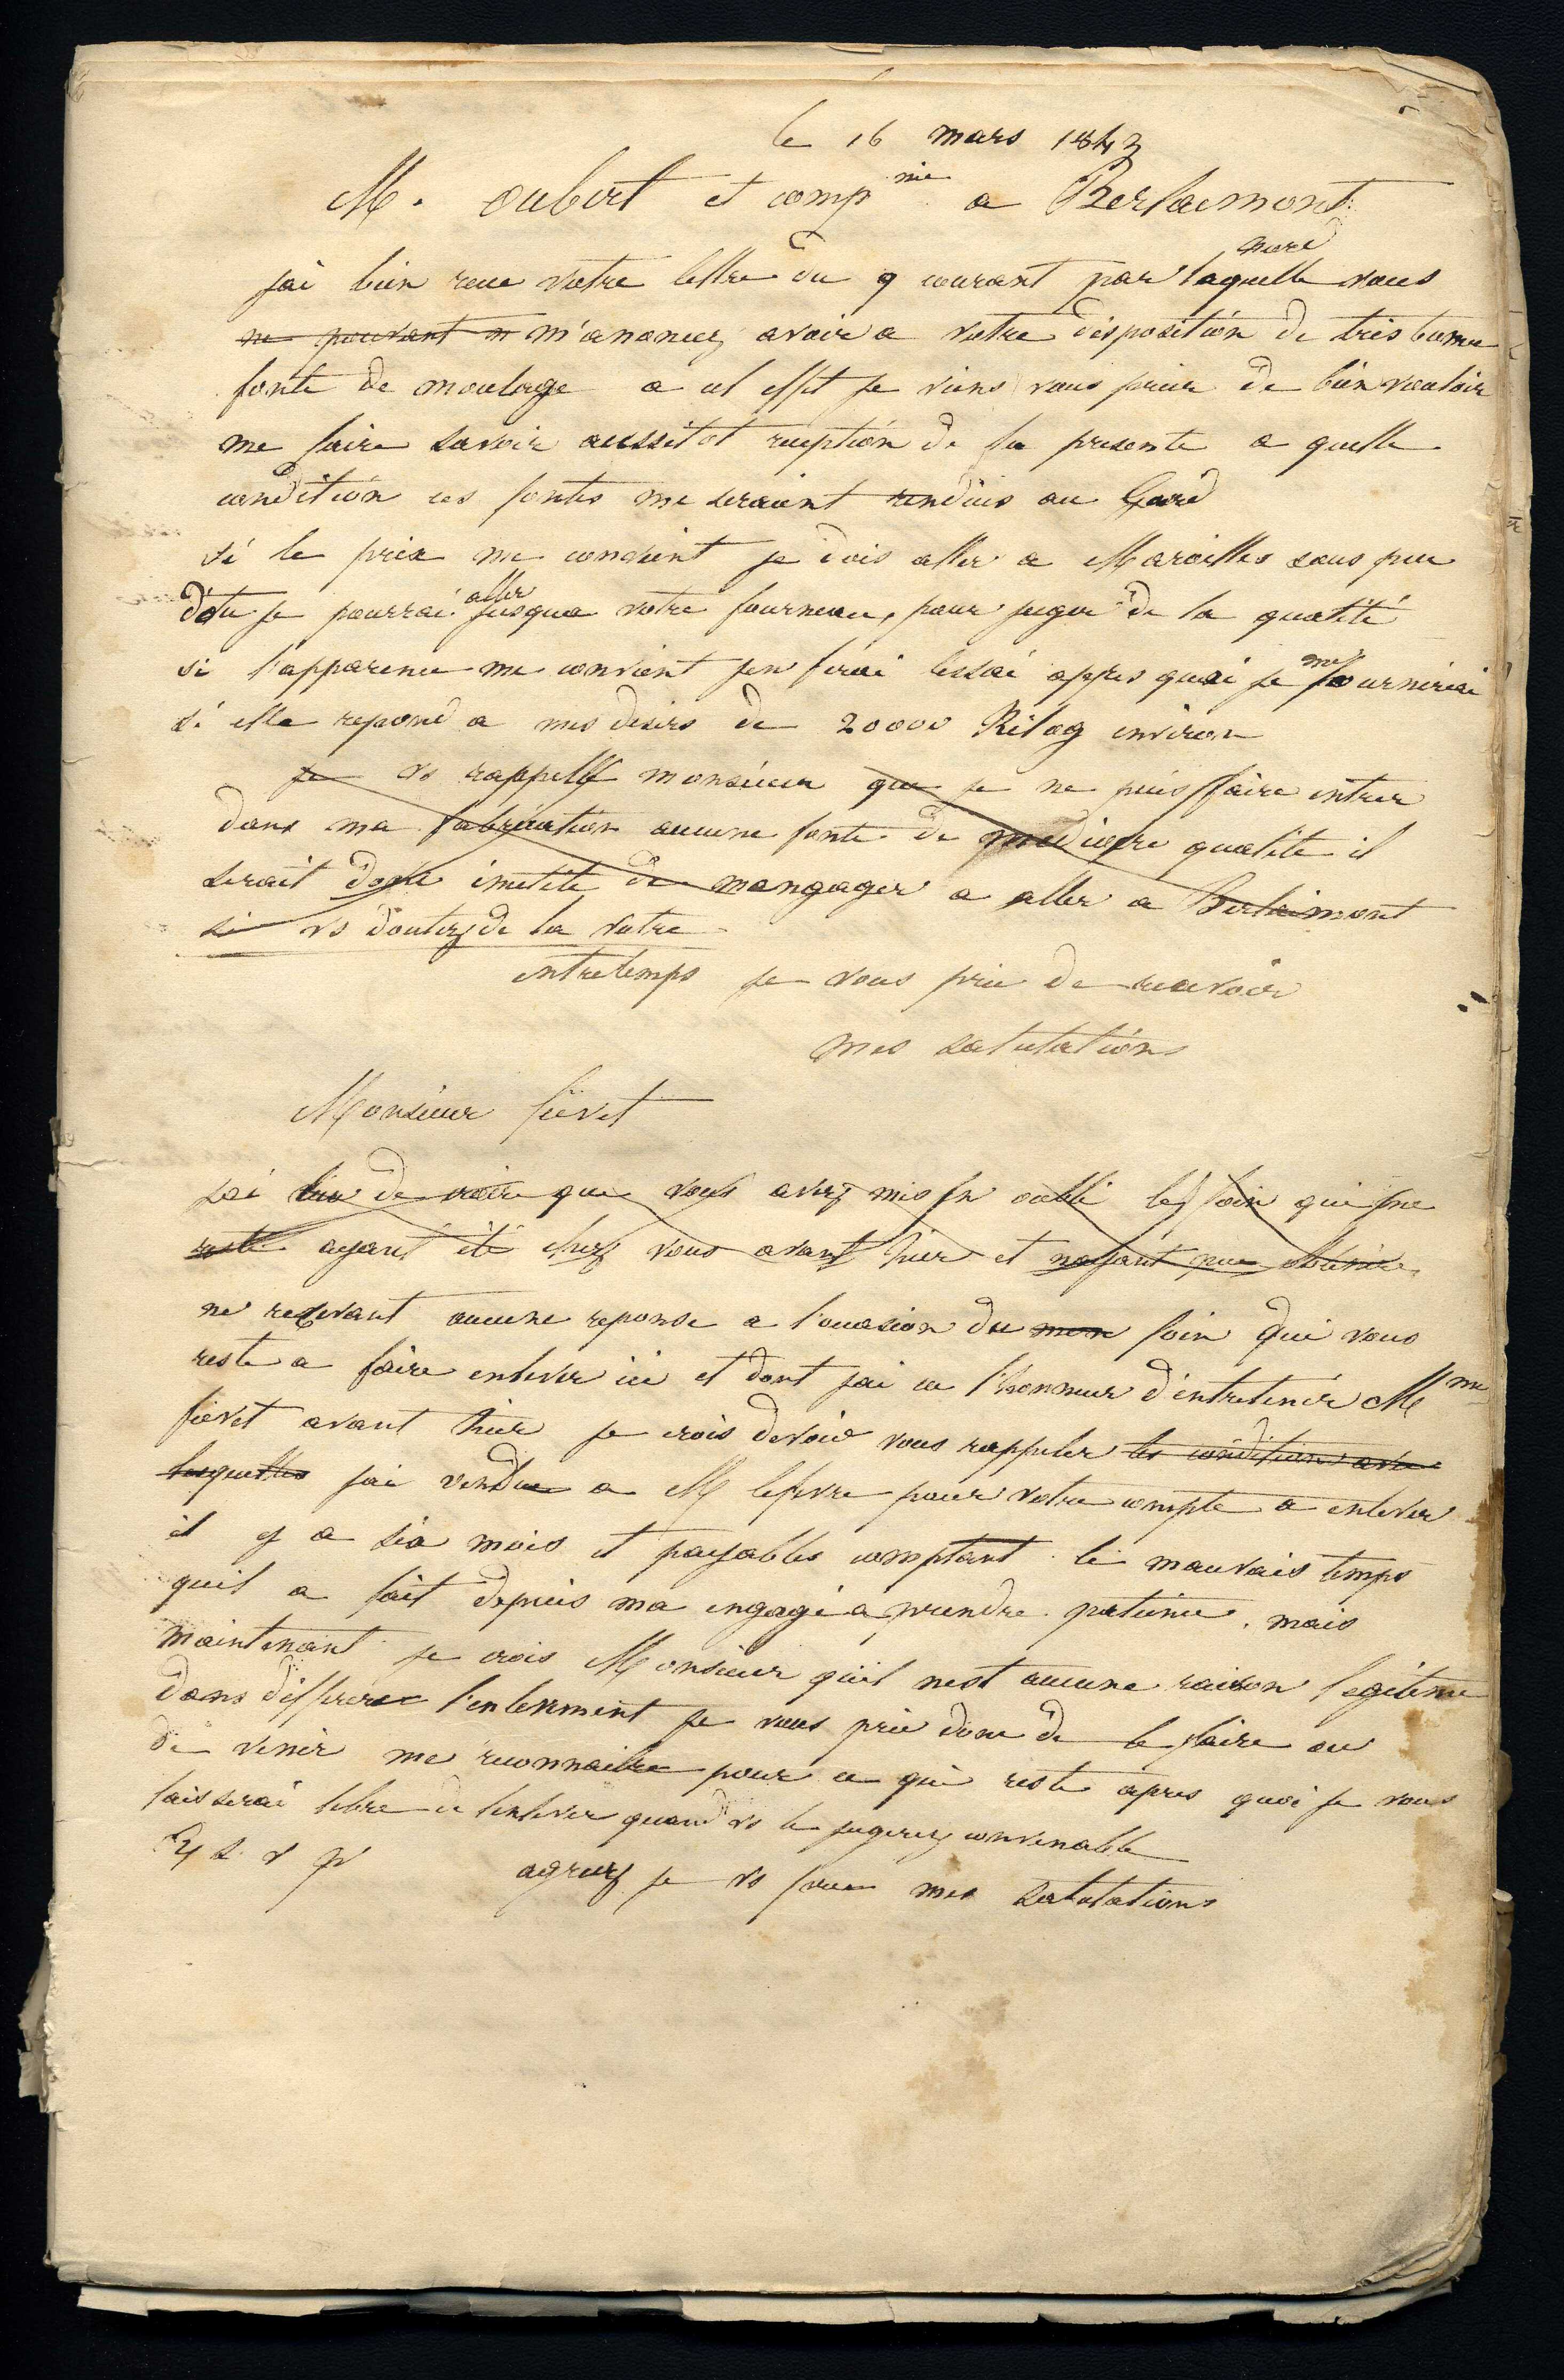 le 16 mars 1843
M. oubert et comp nie a Berlaimont
nord
jai bien recue votre lettre du 9 courant par laquelle vous
ne pouvant m m'anoncez avoir a votre disposition de tres bonne
fonte de moulage a cet effet je viens vous prier de bien vouloir
me faire savoir aussitot reception de la presente a quelle
condition ces fontes me seraient rendues au Gard
si le prix me convient je dois aller a Maroilles sous peu
d'ou je pourrai aller jusqua votre fourneau, pour juger de la qualité
si l'apparence me convient jen ferai lessai appres quoi je me fournirai
si elle repond a mes desirs de 20000 Kilog environ
je vs rappelle monsieur que je ne puis faire entrer
dans ma fabrication aucune fonte de mediocre qualité il
serait donc inutile de mangager a aller a Berlaimont
si vs doutez de la votre
entretemps je vous prie de recevoir
mes salutations
Monsieur fievet
jai lieu de croire que vous avez mis en oubli le foin qui me
reste ayant été chez vous avant hier et nayant pue obtenire
ne recevant aucune reponse a l'occasion du mon foin qui vous
reste a faire enlever ici et dont jai eu l'honneur d'entretenir M me
fievet avant hier je crois devoir vous rappeler les conditions avec
lesquelles jai vendue a M lefevre pour votre compte a enlever
il y a six mois et payables comptant le mauvais temps
quil a fait depuis ma engagé a prendre patience. mais
maintenant je crois Monsieur quil nest aucune raison legitime
dans differer l'enlevement je vous prie donc de le faire ou
de venir me reconnaitre pour ce qui reste apres quoi je vous
laisserai libre de lenlever quand vs le jugerez convenable
agreez je vs prie mes salutations
s v p